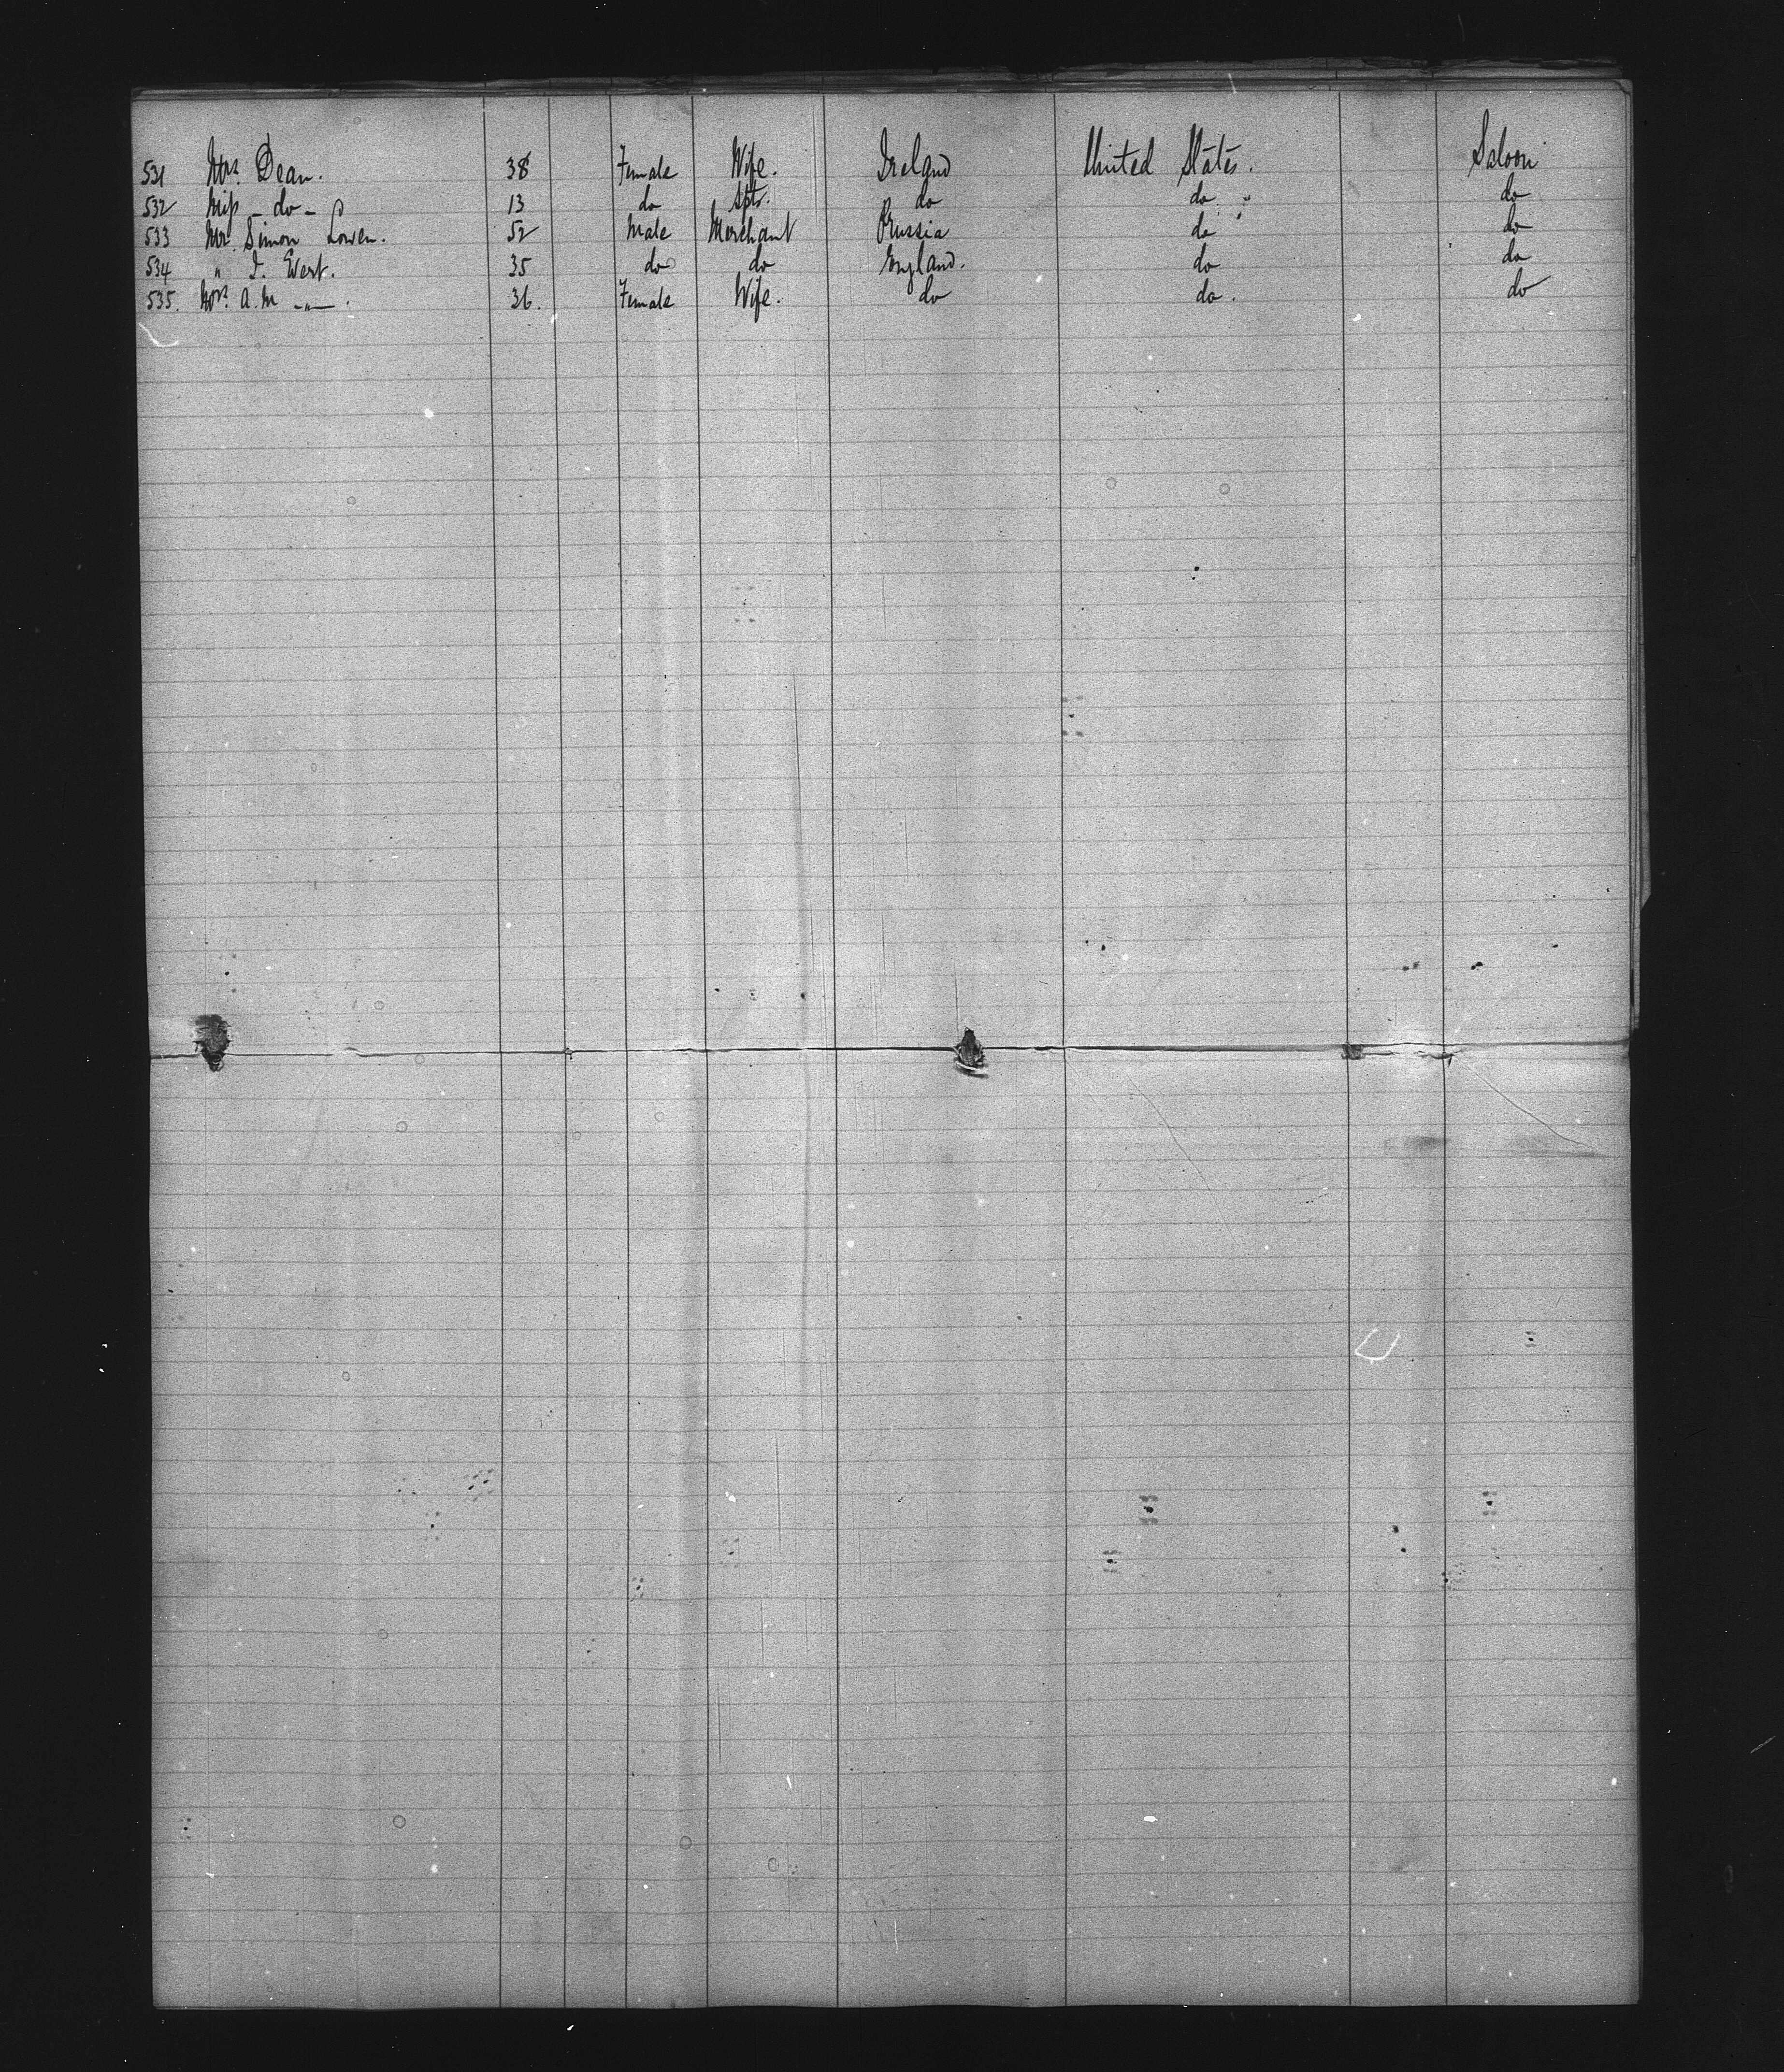 531 Mrs. Dean. 38 Female Wife. Ireland United States. Saloon
532 Miss - do - 13 do Sptr. do do do
533 Mr. Simon Lowen. 52 Male Merchant Prussia do do
534 " I. West. 35 do do England. do do
535. Mrs. A. M -"- . 36. Female Wife. do do. do